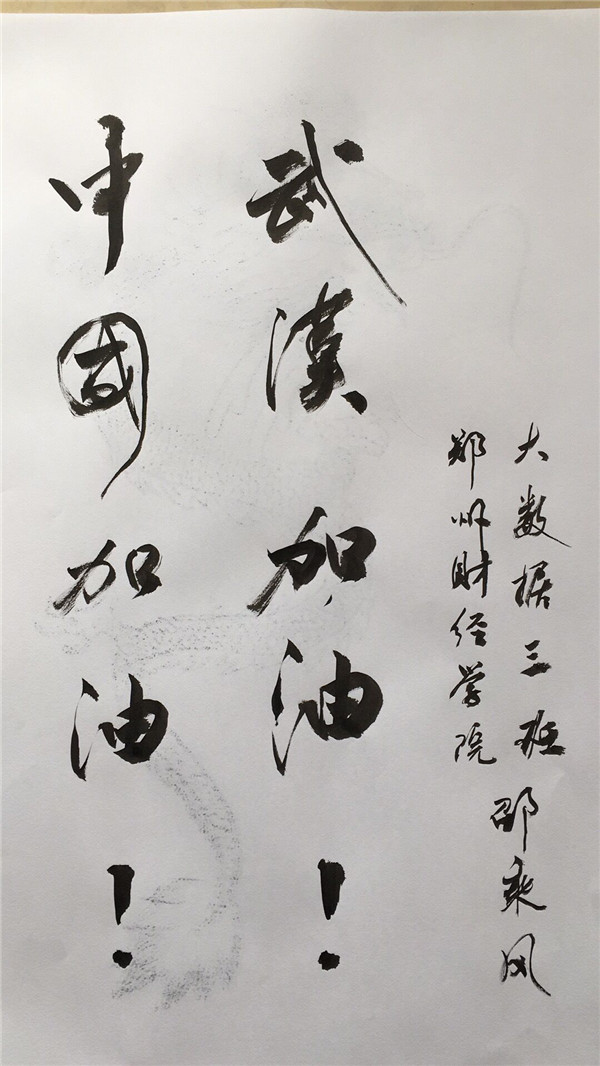 大数据三班
郑州财经学院
邵乘风
武漢加油！
中國加油！